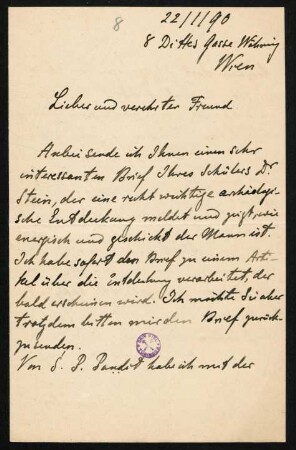 8
22/I/90
8 Dittes Gasse Währing
Wien
Lieber und verehrter Freund
Anbei sende ich Ihnen einen sehr
interessanten Brief Ihres Schülers Dr.
Stein, der eine recht wichtige archäologi-
sche Entdeckung meldet und zeigt, wie
energisch und geschickt der Mann ist.
Ich habe sofort den Brief zu einem Arti-
kel über die Entdeckung verarbeitet, der
bald erscheinen wird. Ich möchte Sie aber
trotzdem bitten mir den Brief zurück-
zusenden.
Von S. P. Pandit habe ich mit der